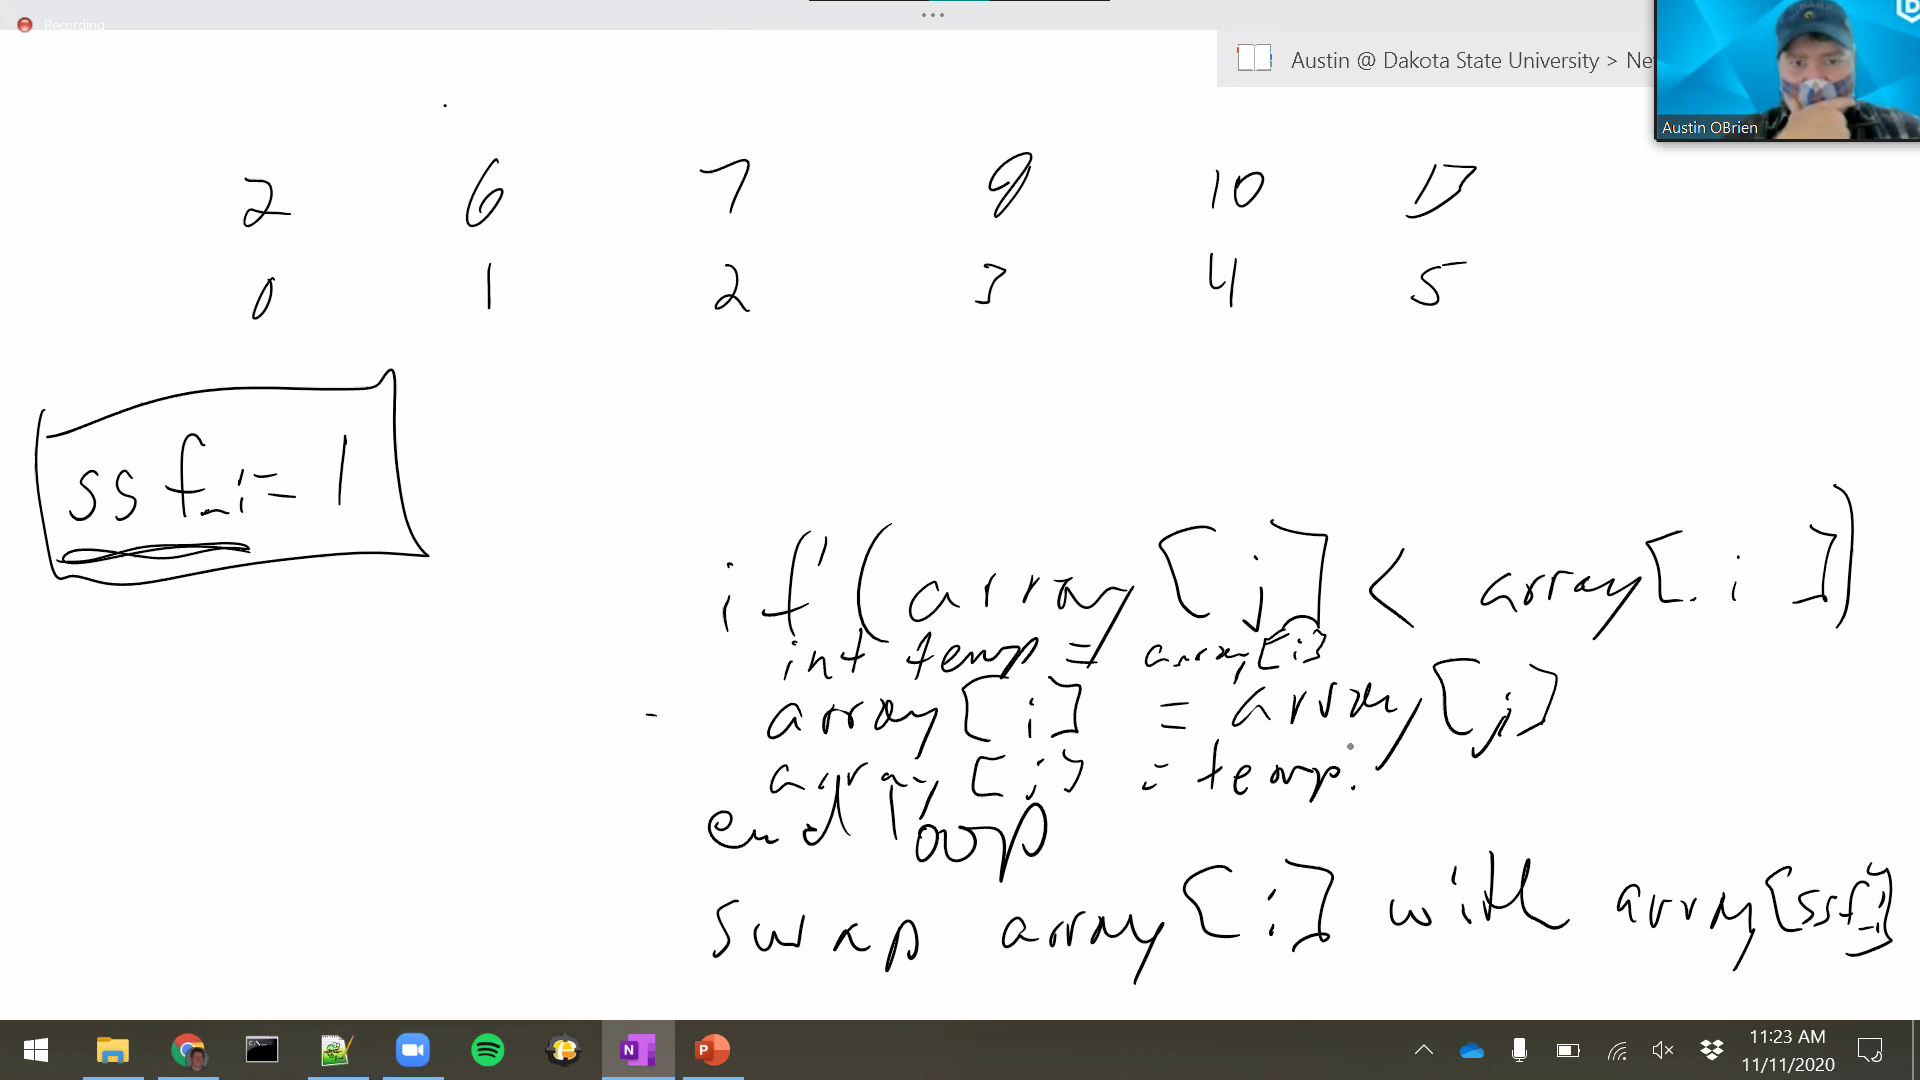 Recording
Austin @ Dakota State University > Ne
Austin OBrien
2 6 7 9 10 17
0 1 2 3 4 5
ssf_i = 1
if (array[j] < array[i])
int temp = array[i]
array[i] = array[j]
array[j] = temp.
end loop
swap array[i] with array[ssf_i]
11:23 AM
11/11/2020